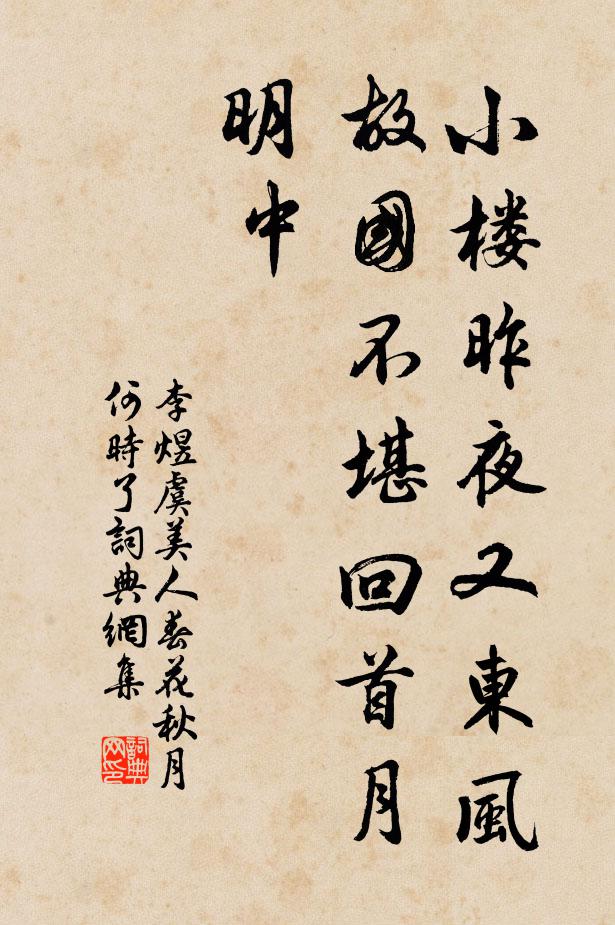 小楼昨夜又東風
故國不堪回首月
明中
李煜虞美人春花秋月
何時了詞典網集
詞典
网印